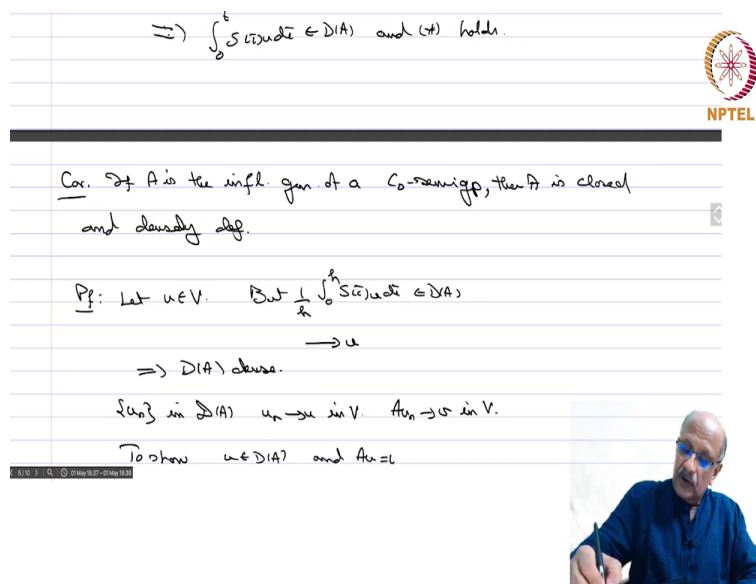 => ∫₀ᵗ S(τ)u dτ ∈ D(A) and (*) holds.
NPTEL
Cor. If A is the infl. gen. of a C₀-semigp, then A is closed
and densely def.
Pf: Let u ∈ V. But 1/h ∫₀ʰ S(τ)u dτ ∈ D(A)
→ u
=> D(A) dense.
{uₙ} in D(A) uₙ → u in V. Auₙ → v in V.
To show u ∈ D(A) and Au =
5/10 01 May 18:37 - 01 May 18:39